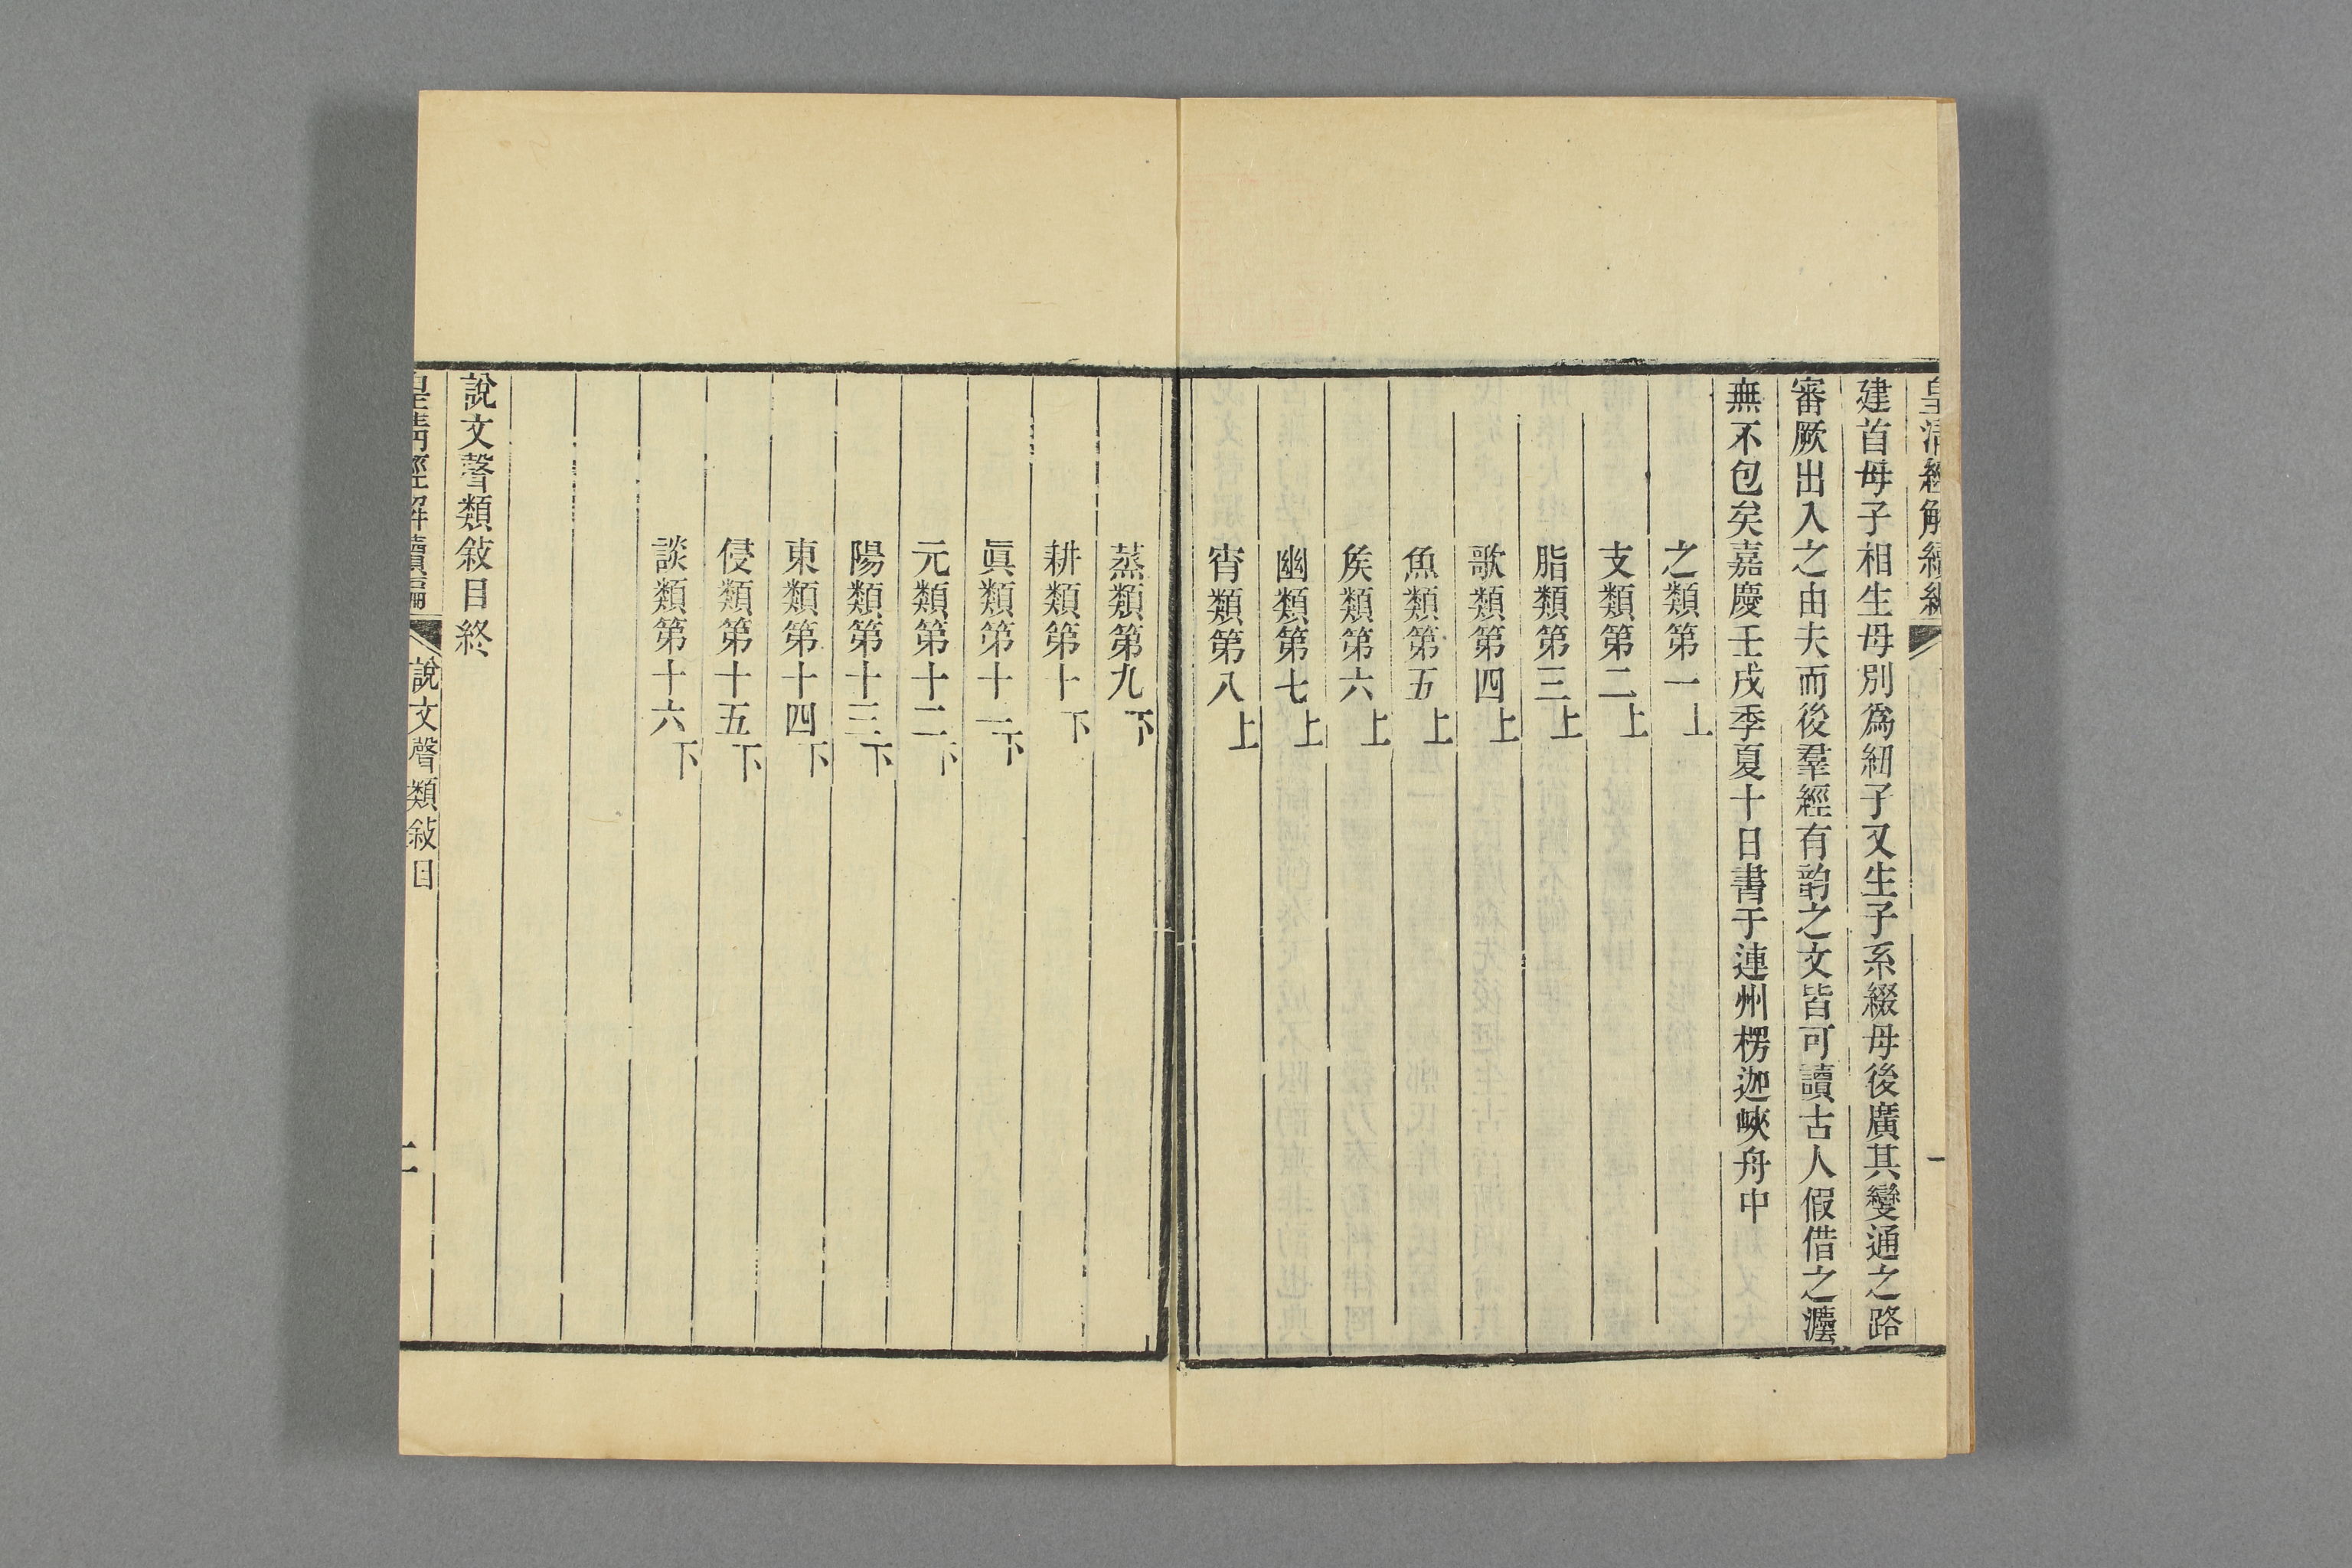 皇清經解續編
一
建首母子相生母別爲紐子又生子系綴母後廣其變通之路
審厥出入之由夫而後羣經有韵之文皆可讀古人假借之灋
無不包矣嘉慶壬戌季夏十日書于連州楞迦峽舟中
之類第一上
支類第二上
脂類第三上
歌類第四上
魚類第五上
矦類第六上
幽類第七上
宵類第八上
蒸類第九下
耕類第十下
眞類第十一下
元類第十二下
陽類第十三下
東類第十四下
侵類第十五下
談類第十六下
說文聲類敍目終
皇清經解續編
說文聲類敍目
二